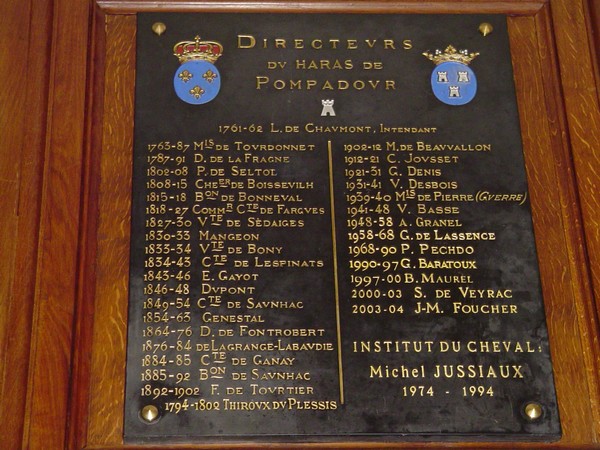 DIRECTEVRS
DV HARAS DE
POMPADOVR
1761-62 L. DE CHAVMONT, INTENDANT
1763-87 MIS DE TOVRDONNET
1787-91 D. DE LA FRAGNE
1802-08 P. DE SELTOT
1808-15 CHER DE BOISSEVILH
1815-18 BON DE BONNEVAL
1818-27 COMMR CTE DE FARGVES
1827-30 VTE DE SÉDAIGES
1830-33 MANGEON
1833-34 VTE DE BONY
1834-43 CTE DE LESPINATS
1843-46 E. GAYOT
1846-48 DVPONT
1849-54 CTE DE SAVNHAC
1854-63 GENESTAL
1864-76 D. DE FONTROBERT
1876-84 DE LAGRANGE-LABAVDIE
1884-85 CTE DE GANAY
1885-92 BON DE SAVNHAC
1892-1902 F. DE TOVRTIER
1794-1802 THIROVX DV PLESSIS
1902-12 M. DE BEAVVALLON
1912-21 C. JOVSSET
1921-31 G. DENIS
1931-41 V. DESBOIS
1939-40 MIS DE PIERRE (GVERRE)
1941-48 V. BASSE
1948-58 A. GRANEL
1958-68 G. DE LASSENCE
1968-90 P. PECHDO
1990-97 G. BARATOUX
1997-00 B. MAUREL
2000-03 S. DE VEYRAC
2003-04 J-M. FOUCHER
INSTITUT DU CHEVAL:
Michel JUSSIAUX
1974 - 1994